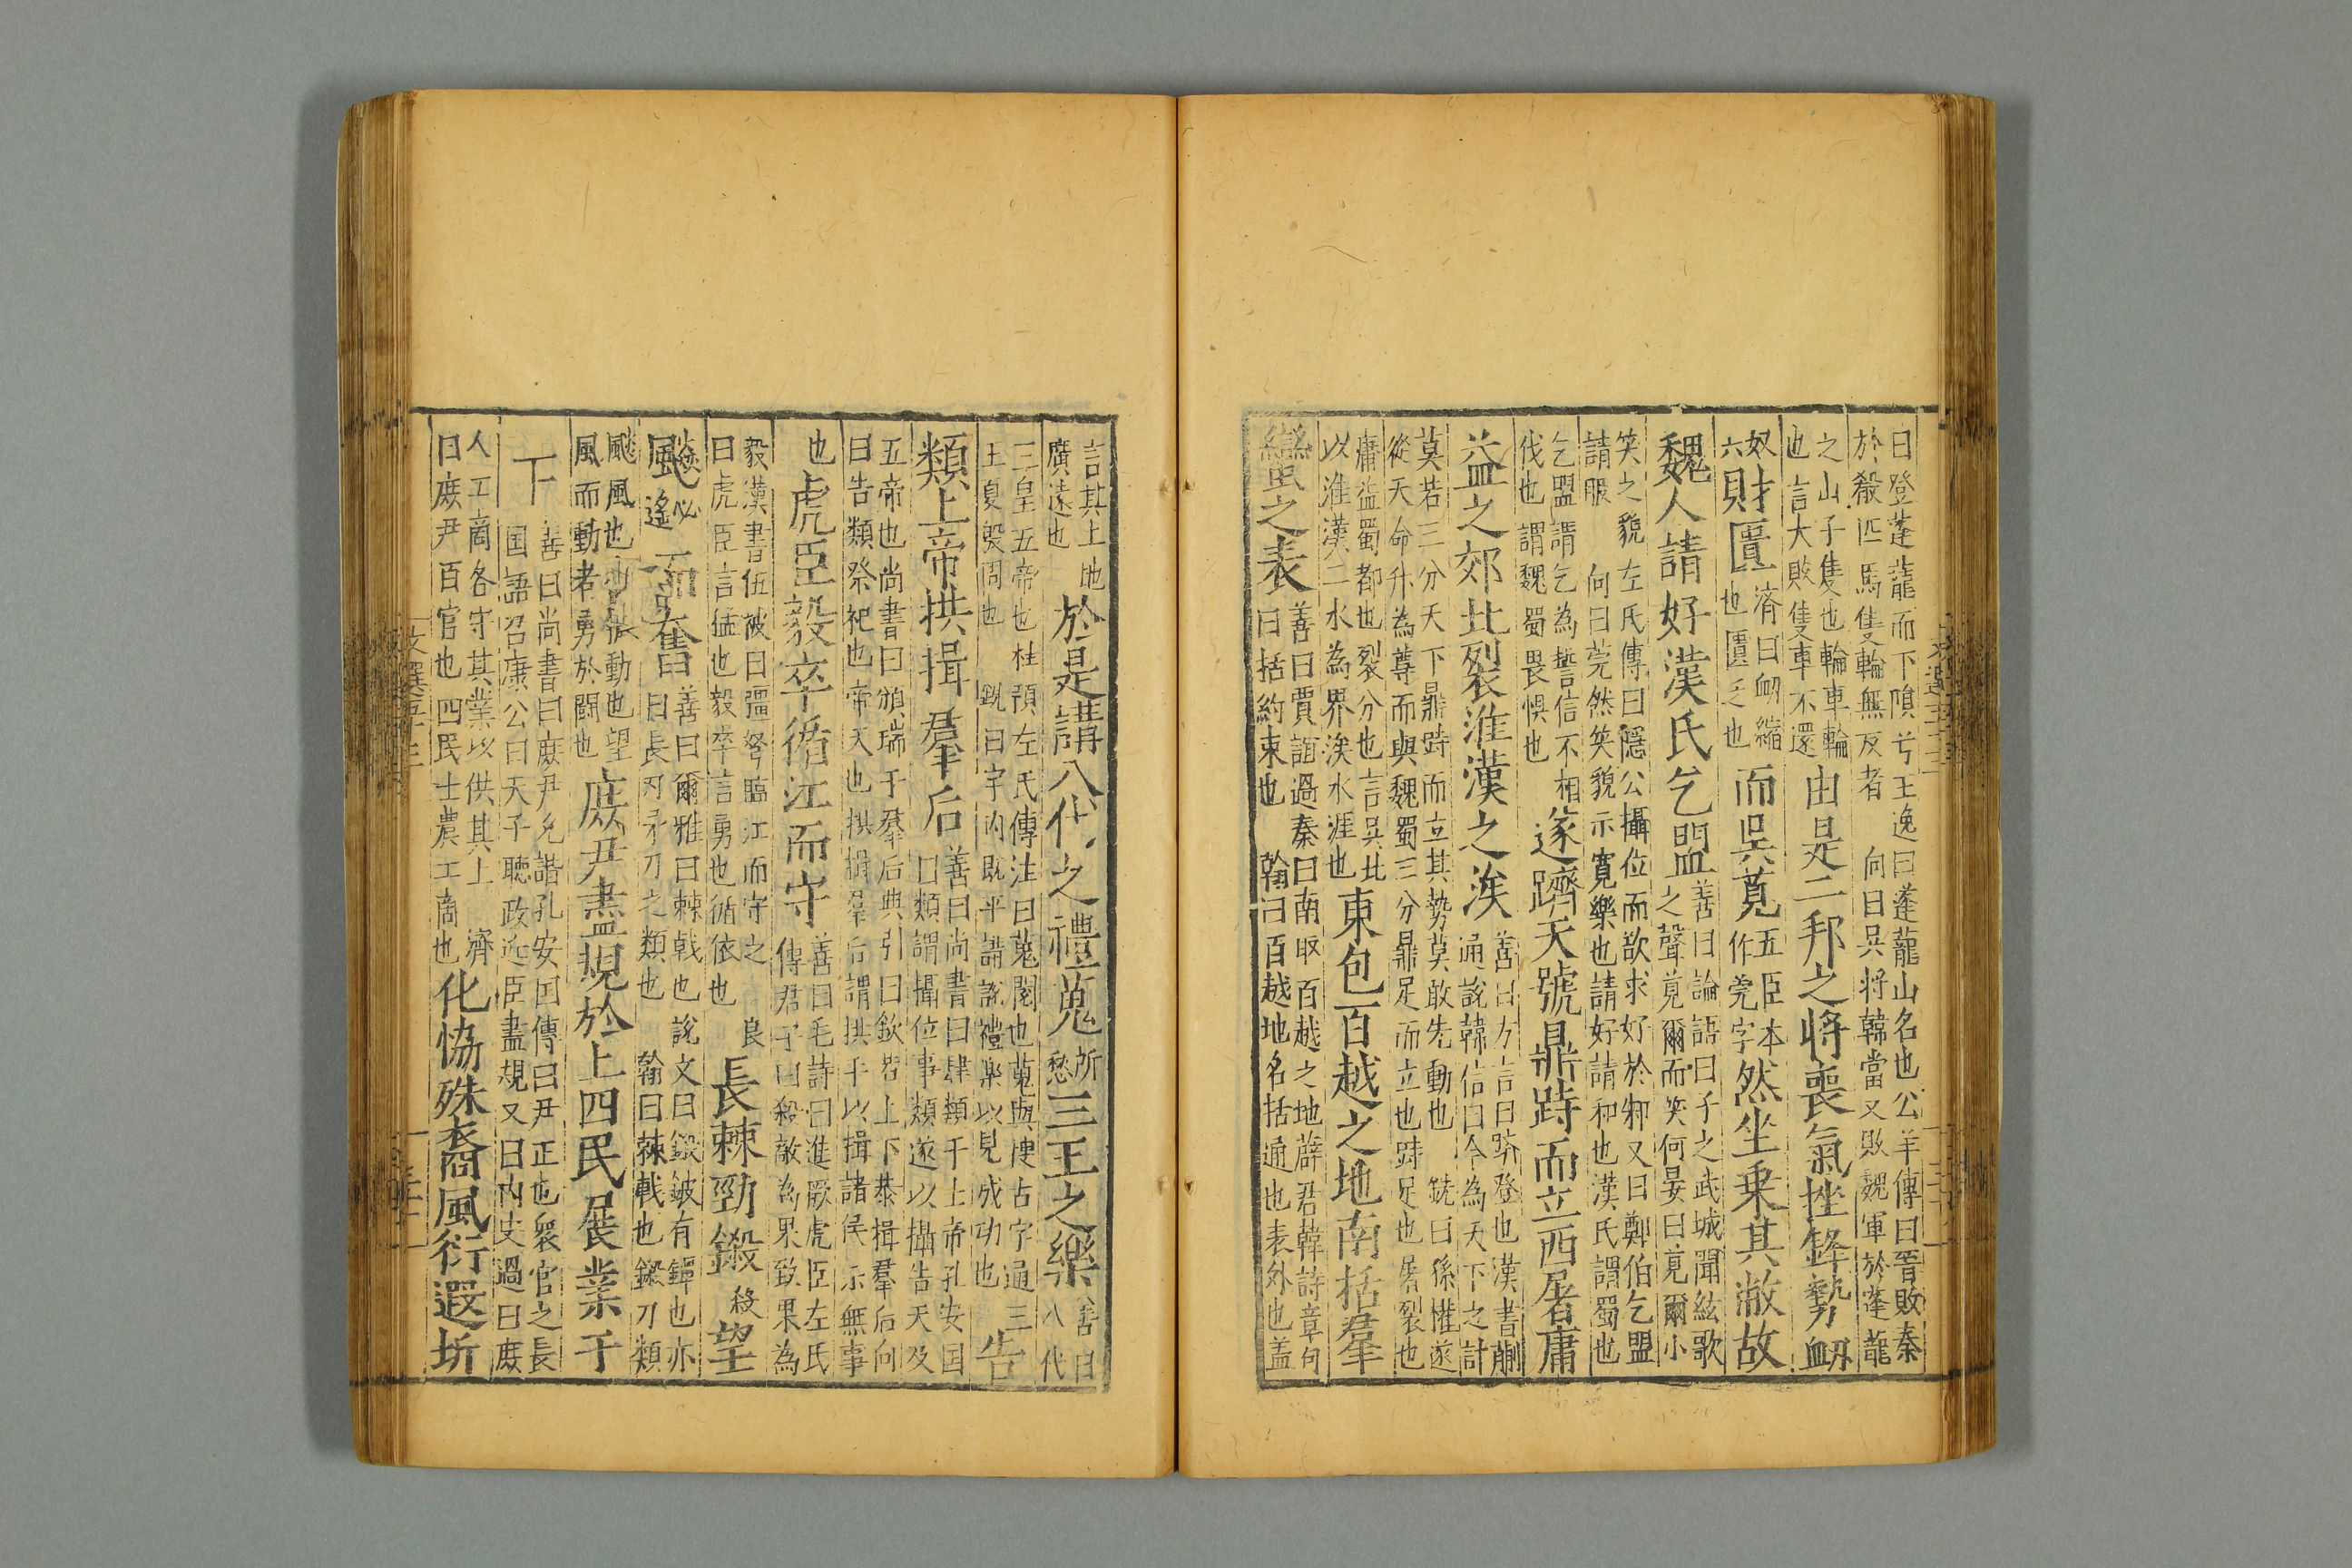 曰登蓬蘢而下隕兮王逸曰蓬蘢山名也公羊傳曰晉敗秦
於殽匹馬隻輪無反者　向曰吳將韓當又敗魏軍於蓬蘢
之山子隻也輪車輪
也言大敗隻車不還
由是二邦之將喪氣挫鋒勢衂
奴
六
財匱
濟曰衂縮
也匱乏也
而吳莧
五臣本
作莞字
然坐乗其敝故
魏人請好漢氏乞盟
善曰論語曰子之武城聞絃歌
之聲莧爾而笑何晏曰莧爾小
笑之貌左氏傳曰隱公攝位而欲求好於邾又曰鄭伯乞盟
請服　向曰莞然笑貌示寬樂也請好請和也漢氏謂蜀也
乞盟謂乞為誓信不相
伐也謂魏蜀畏惧也
遂躋天號鼎跱而立西屠庸
益之郊北裂淮漢之涘
善曰方言曰躋登也漢書蒯
通說韓信曰今為天下之計
莫若三分天下鼎跱而立其勢莫敢先動也　銑曰孫權遂
從天命升為尊而與魏蜀三分鼎足而立也跱足也屠裂也
庸益蜀都也裂分也言吳北
以淮漢二水為界涘水涯也
東包百越之地南括羣
蠻之表
善曰賈誼過秦曰南取百越之地薛君韓詩章句
曰括約束也　翰曰百越地名括通也表外也蓋
言其上地
廣遠也
於是講八代之禮蒐
所
愁
三王之樂
善曰
八代
三皇五帝也杜預左氏傳注曰蒐閱也蒐與㨕古字通三
王夏殷周也　銑曰宇內既平講說禮樂以見成功也
告
類上帝拱揖羣后
善曰尚書曰肆類于上帝孔安国
曰類謂攝位事類遂以攝告天及
五帝也尚書曰頒瑞于羣后典引曰欽若上下恭揖羣后向
曰告類祭祀也帝天也拱揖羣后謂拱手以揖諸侯示無事
也
虎臣毅卒循江而守
善曰毛詩曰進厥虎臣左氏
傳君子曰殺敵為果致果為
毅漢書伍被曰彊弩臨江而守之　良
曰虎臣言猛也毅卒言勇也循依也
長棘勁鎩
殺
望
飈
必
遙
而奮
善曰爾雅曰棘戟也說文曰鎩鈹有鐔也亦
曰長刃矛刀之類也　翰曰棘戟也鎩刀類
風而動者勇於鬪也
庶尹盡規於上四民展業于
下
善曰尚書曰庶尹允諧孔安国傳曰尹正也衆官之長
国語召康公曰天子聽政近臣盡規又曰內史過曰庶
人工商各守其業以供其上　濟
曰庶尹百官也四民士農工商也
化恊殊裔風衍遐圻